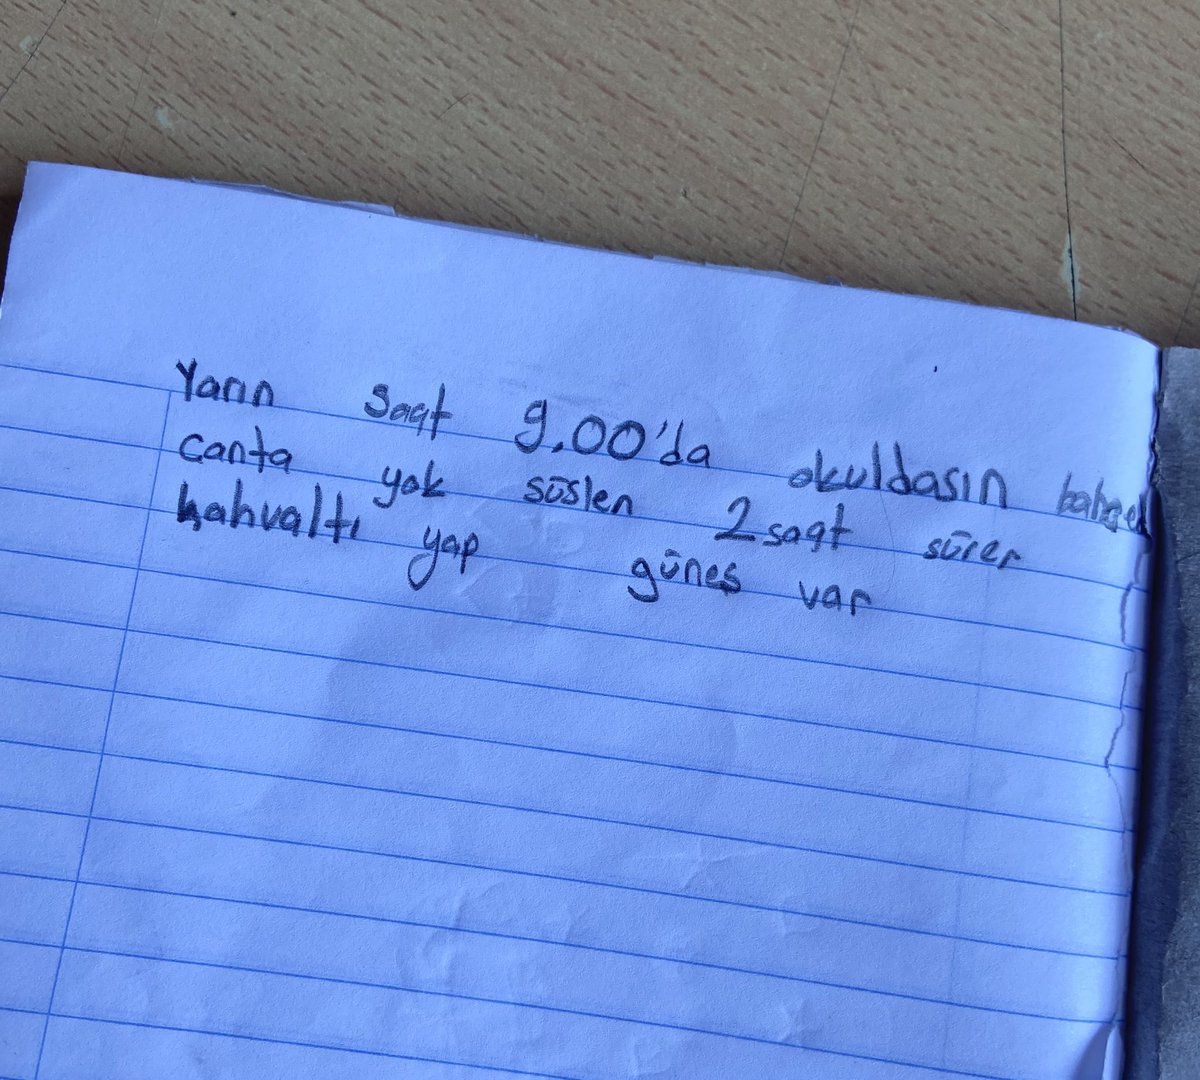 Yarın saat 9.00'da okuldasın
canta yok süslen 2 saat sürer
kahvaltı yap günes var